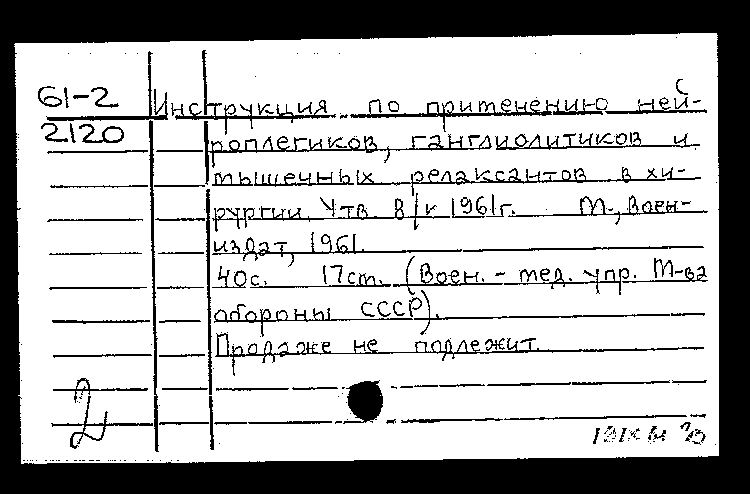 61-2
2120
Инструкция по применению ней-
роплегиков, ганглиолитиков и
мышечных релаксантов в хи-
рургии. Утв. 8/V 1961г. М., Воен-
издат, 1961.
40с. 17см. (Воен.-мед. упр. М-ва
обороны СССР).
Продаже не подлежит.
2